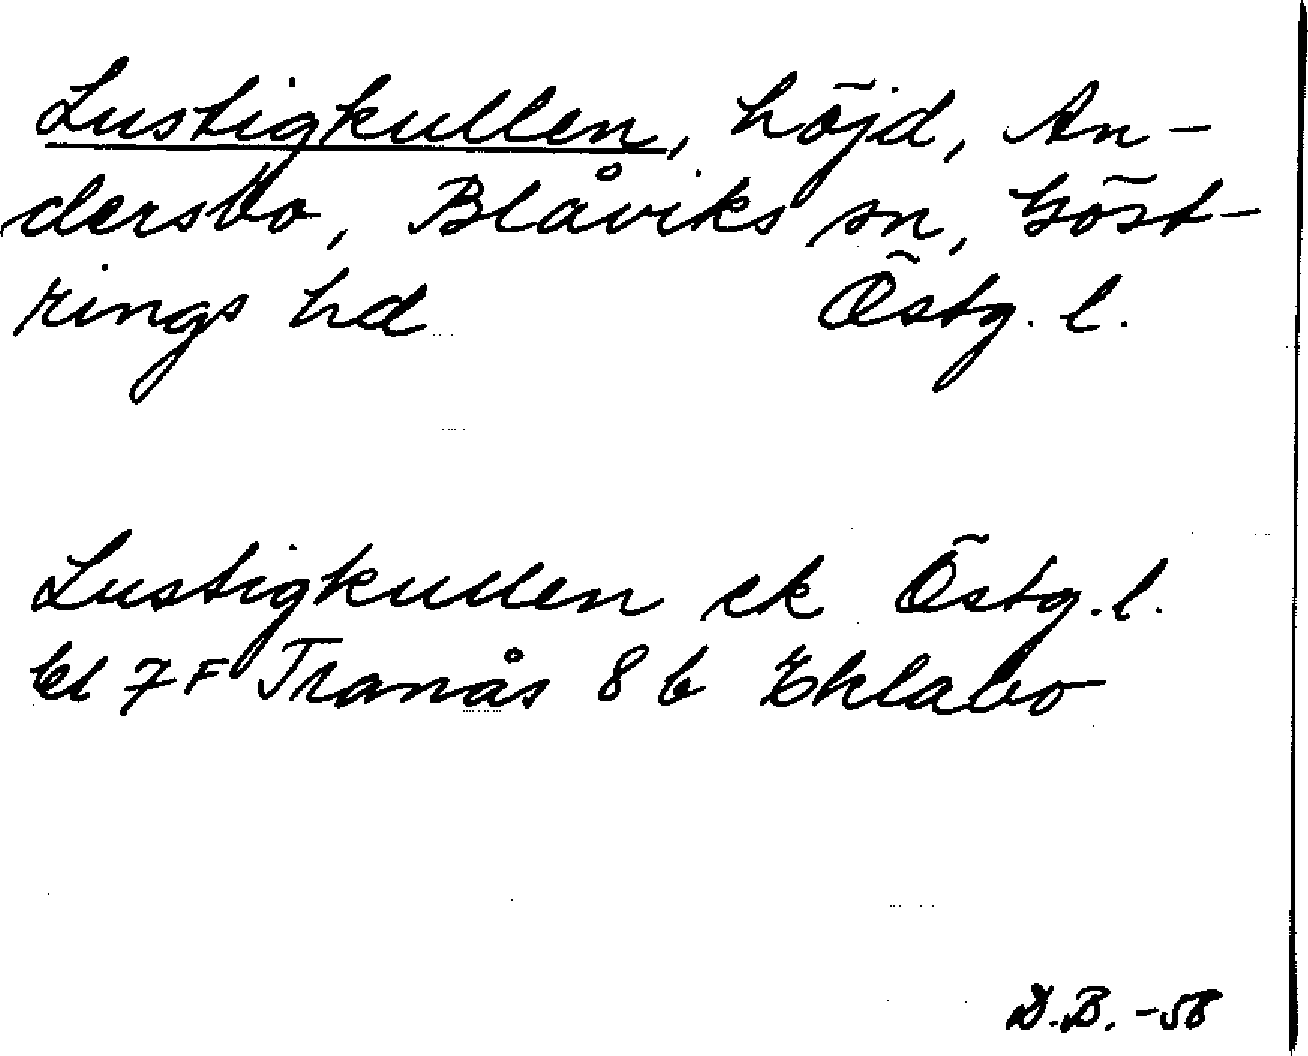 Lustigkullen, höjd, An-
dersbo, Blåviks sn, Göst-
rings hd Östg. l.
Lustigkullen ek Östg. l.
bl 7F Tranås 8 b Eklabo
D.B. -58